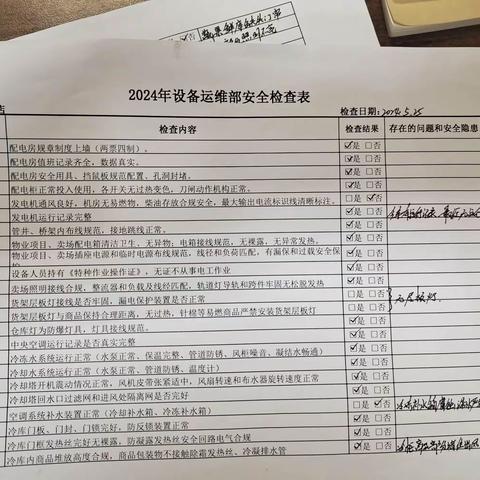 2024年设备运维部安全检查表
店
检查日期:2024.5.25
检查内容 检查结果 存在的问题和安全隐患
配电房规章制度上墙（两票四制）。 ☑是 □否
配电房值班记录齐全，数据真实。 ☑是 □否
配电房安全用具、挡鼠板规范配置、孔洞封堵。 ☑是 □否
配电柜正常投入使用，各开关无过热变色，刀闸动作机构正常。 ☑是 □否
发电机通风良好，机房无易燃物，柴油存放合规安全，最大输出电流标识线清晰标注。 □是 ☑否
发电机运行记录完整 ☑是 □否
管井、桥架内布线规范，接地跳线正常。 ☑是 □否
物业项目、卖场配电箱清洁卫生，无异物；电箱接线规范，无裸露，无异常发热。 ☑是 □否
物业项目、卖场插座电源和临时电源布线规范，线径和负荷匹配，有漏保和过载安全保护
设备人员持有《特种作业操作证》，无证不从事电工作业 ☑是 □否
卖场照明接线合规，整流器和负载及线经匹配，轨道灯导轨和跨件牢固无松脱发热 ☑是 □否
货架层板灯接线是否牢固，漏电保护装置是否正常 □是 □否
货架层板灯与商品保持合理距离，无过热，针棉等易燃商品严禁安装货架层板灯 □是 □否
仓库灯为防爆灯具，灯具接线规范。 ☑是 □否
中央空调运行记录是否真实完整 ☑是 □否
冷冻水系统运行正常（水泵正常、保温完整、管道防锈、风柜噪音、凝结水畅通） ☑是 □否
冷却水系统运行正常（水泵正常、管道防锈、温度计） ☑是 □否
冷却塔开机震动情况正常，风机皮带张紧适中，风扇转速和布水器旋转速度正常 ☑是 □否
冷却塔回水口过滤网和进风处隔离网是否完好 ☑是 □否
空调系统补水装置正常（冷却补水箱、冷冻补水箱） □是 ☑否
冷库门板、门封、门锁完好，防反锁装置正常 ☑是 □否
冷库门框发热丝完好无裸露，防凝露发热丝安全回路电气合规 ☑是 □否
冷库内商品堆放高度合规，商品包装物不接触除霜发热丝、冷凝排水管